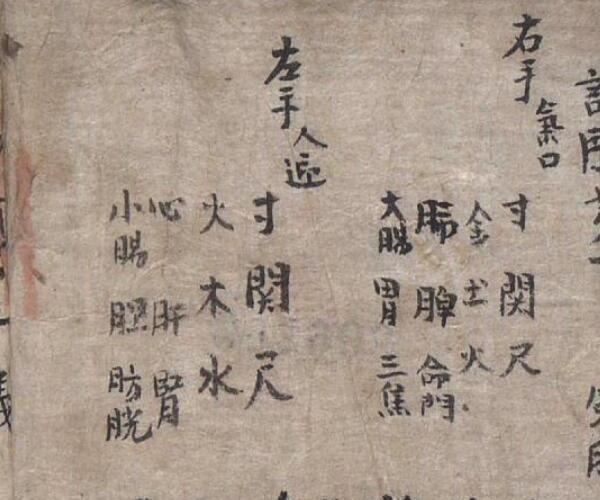 右手氣口
寸関尺
金土火
肺脾命門
大腸胃三焦
左手人迎
寸関尺
火木水
心肝腎
小腸胆肪胱